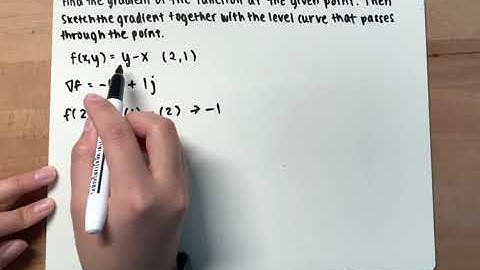 Find the gradient of the function at the given point. Then
sketch the gradient together with the level curve that passes
through the point.
f(x,y) = y-x (2,1)
∇f = - + 1j
f(2 (1) (2) → -1